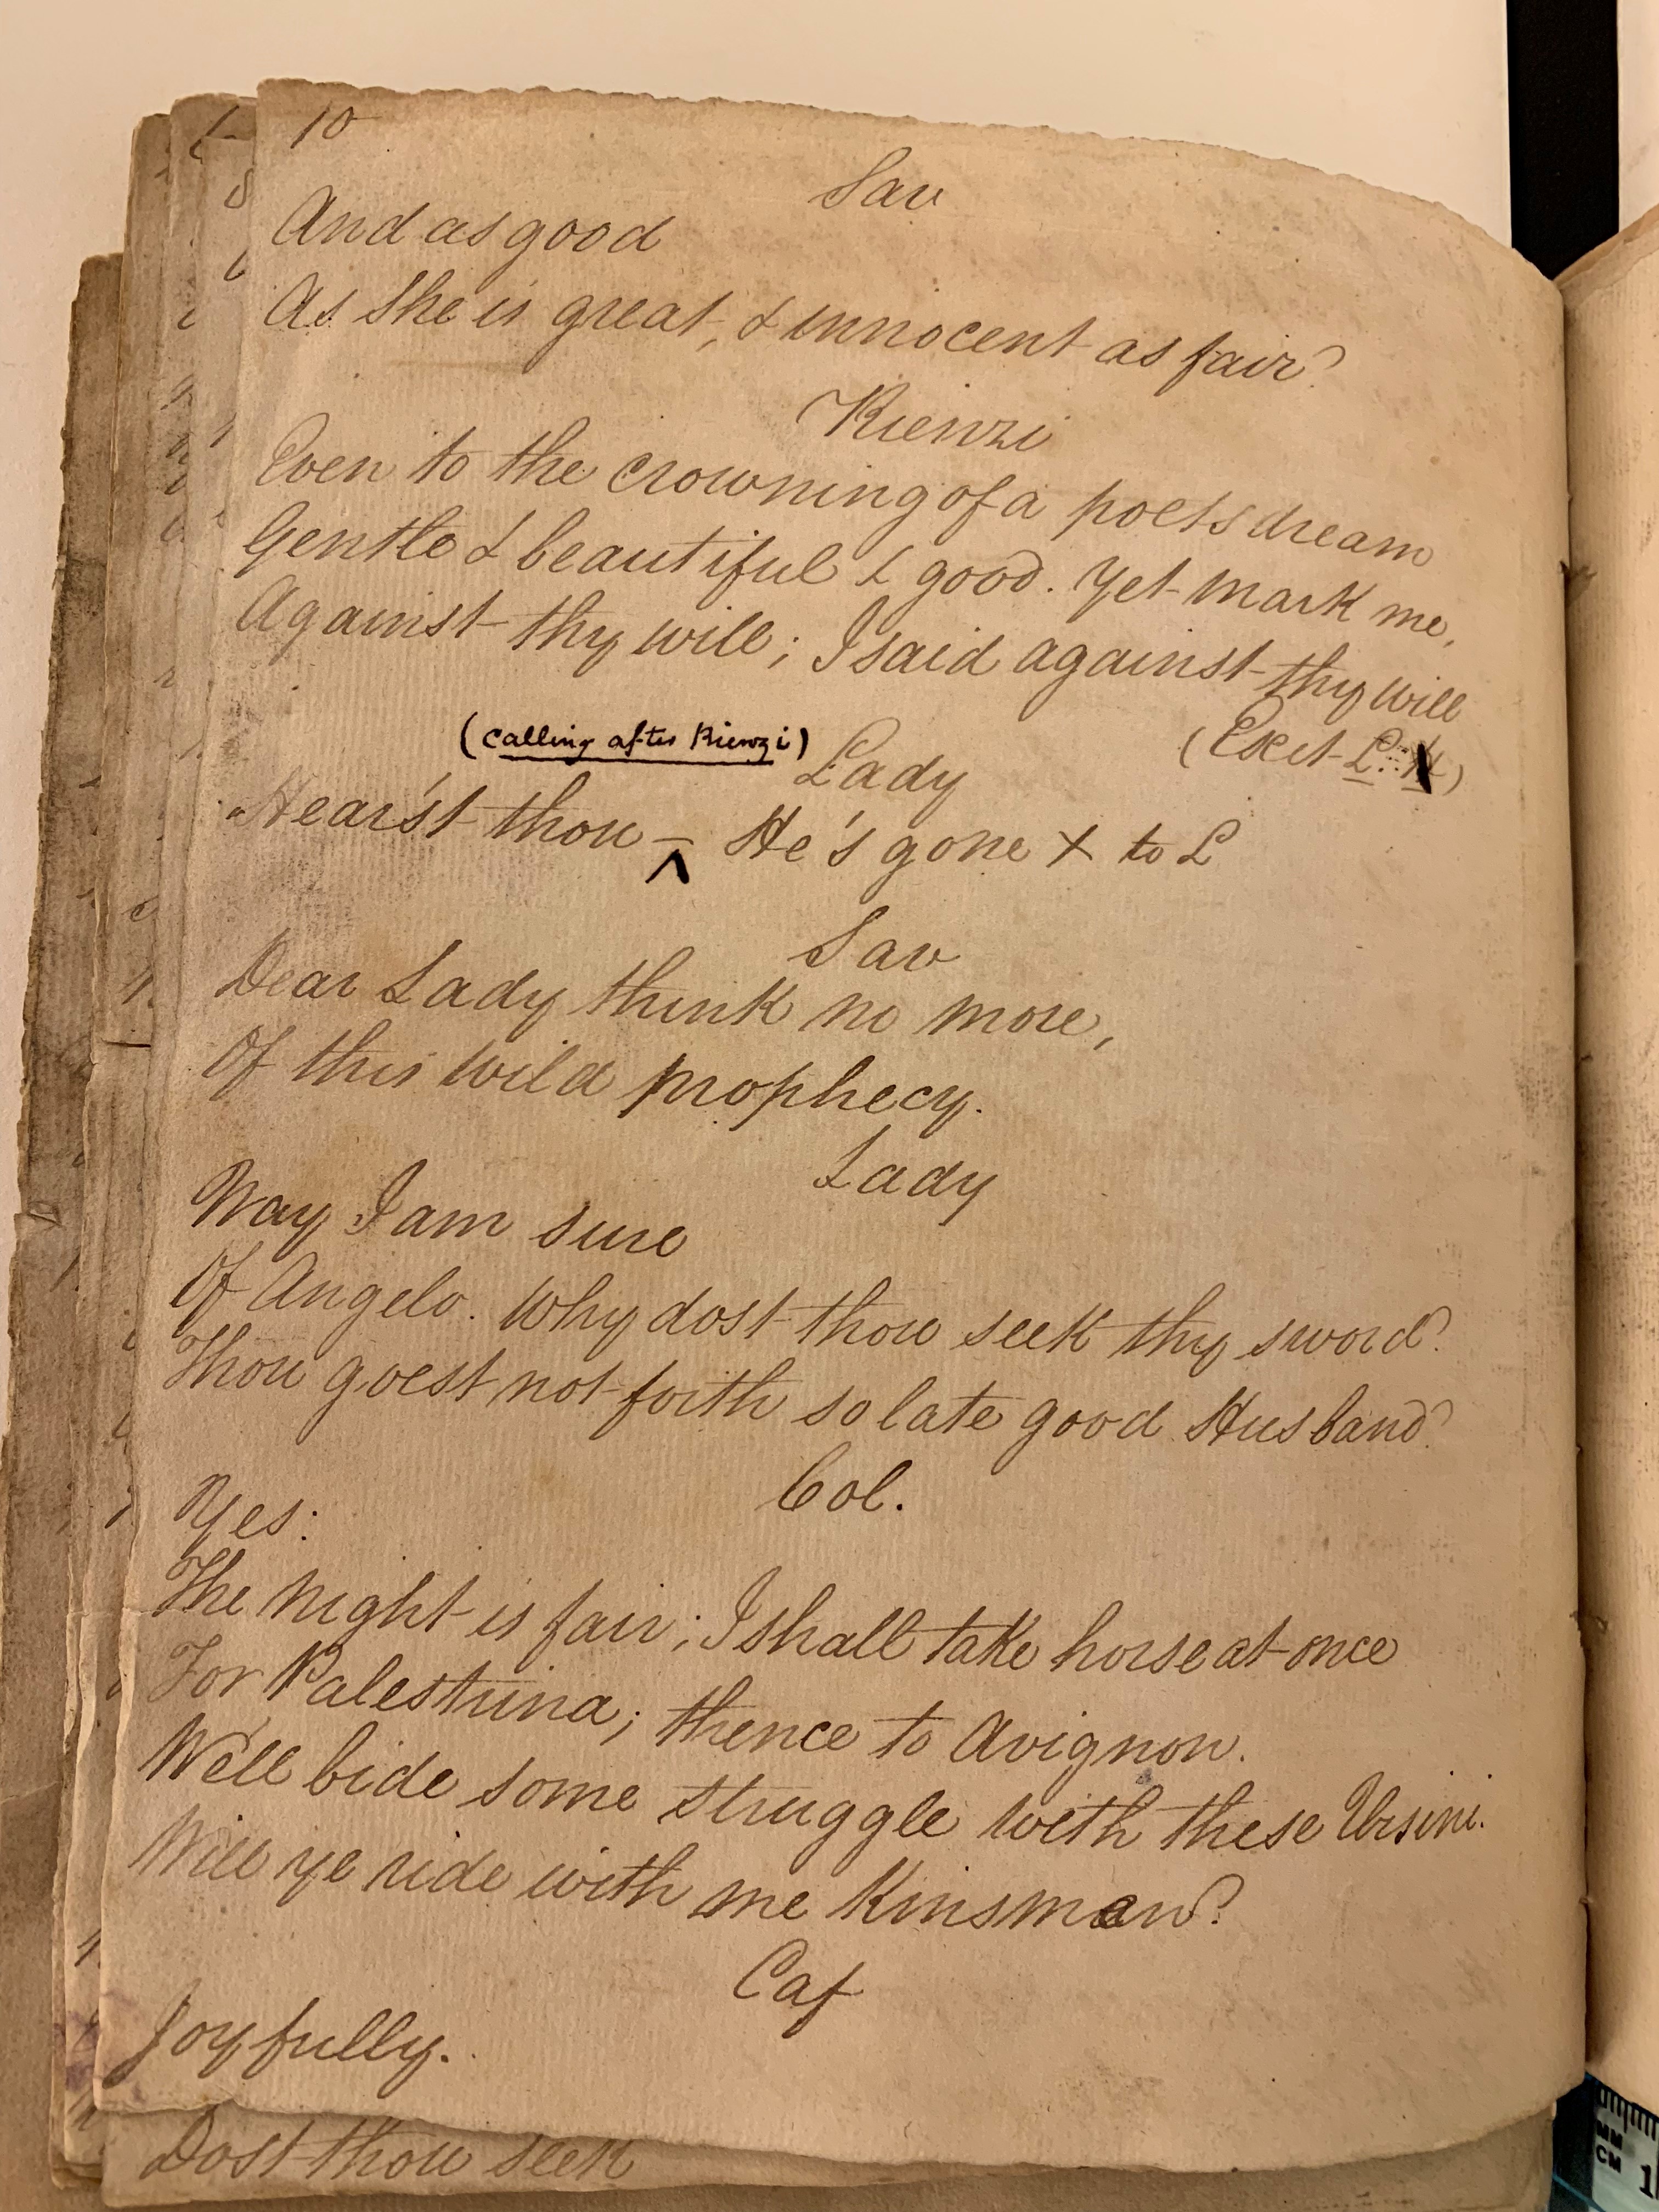 10
Sav
And as good
As She is great, & innocent as fair?
Rienzi
Even to the crowning of a poets dream
Gentle & beautiful & good. Yet mark me,
Against thy will; I said against thy will
(Exit L.)
(calling after Rienzi)
Lady
Hear'st thou – ^ He's gone X to L
Sav
Dear Lady think no more,
Of this wild prophecy.
Lady
Nay I am sure
Of Angelo. Why dost thou seek thy sword?
Thou goest not forth so late good Husband?
Col.
Yes:
The Night is fair; I shall take horse at once
For Palestrina; thence to Avignon.
We'll bide some struggle with these Ursini.
Will ye ride with me Kinsmen?
Caf
Joyfully.
Dost thou seek
MM
CM 1